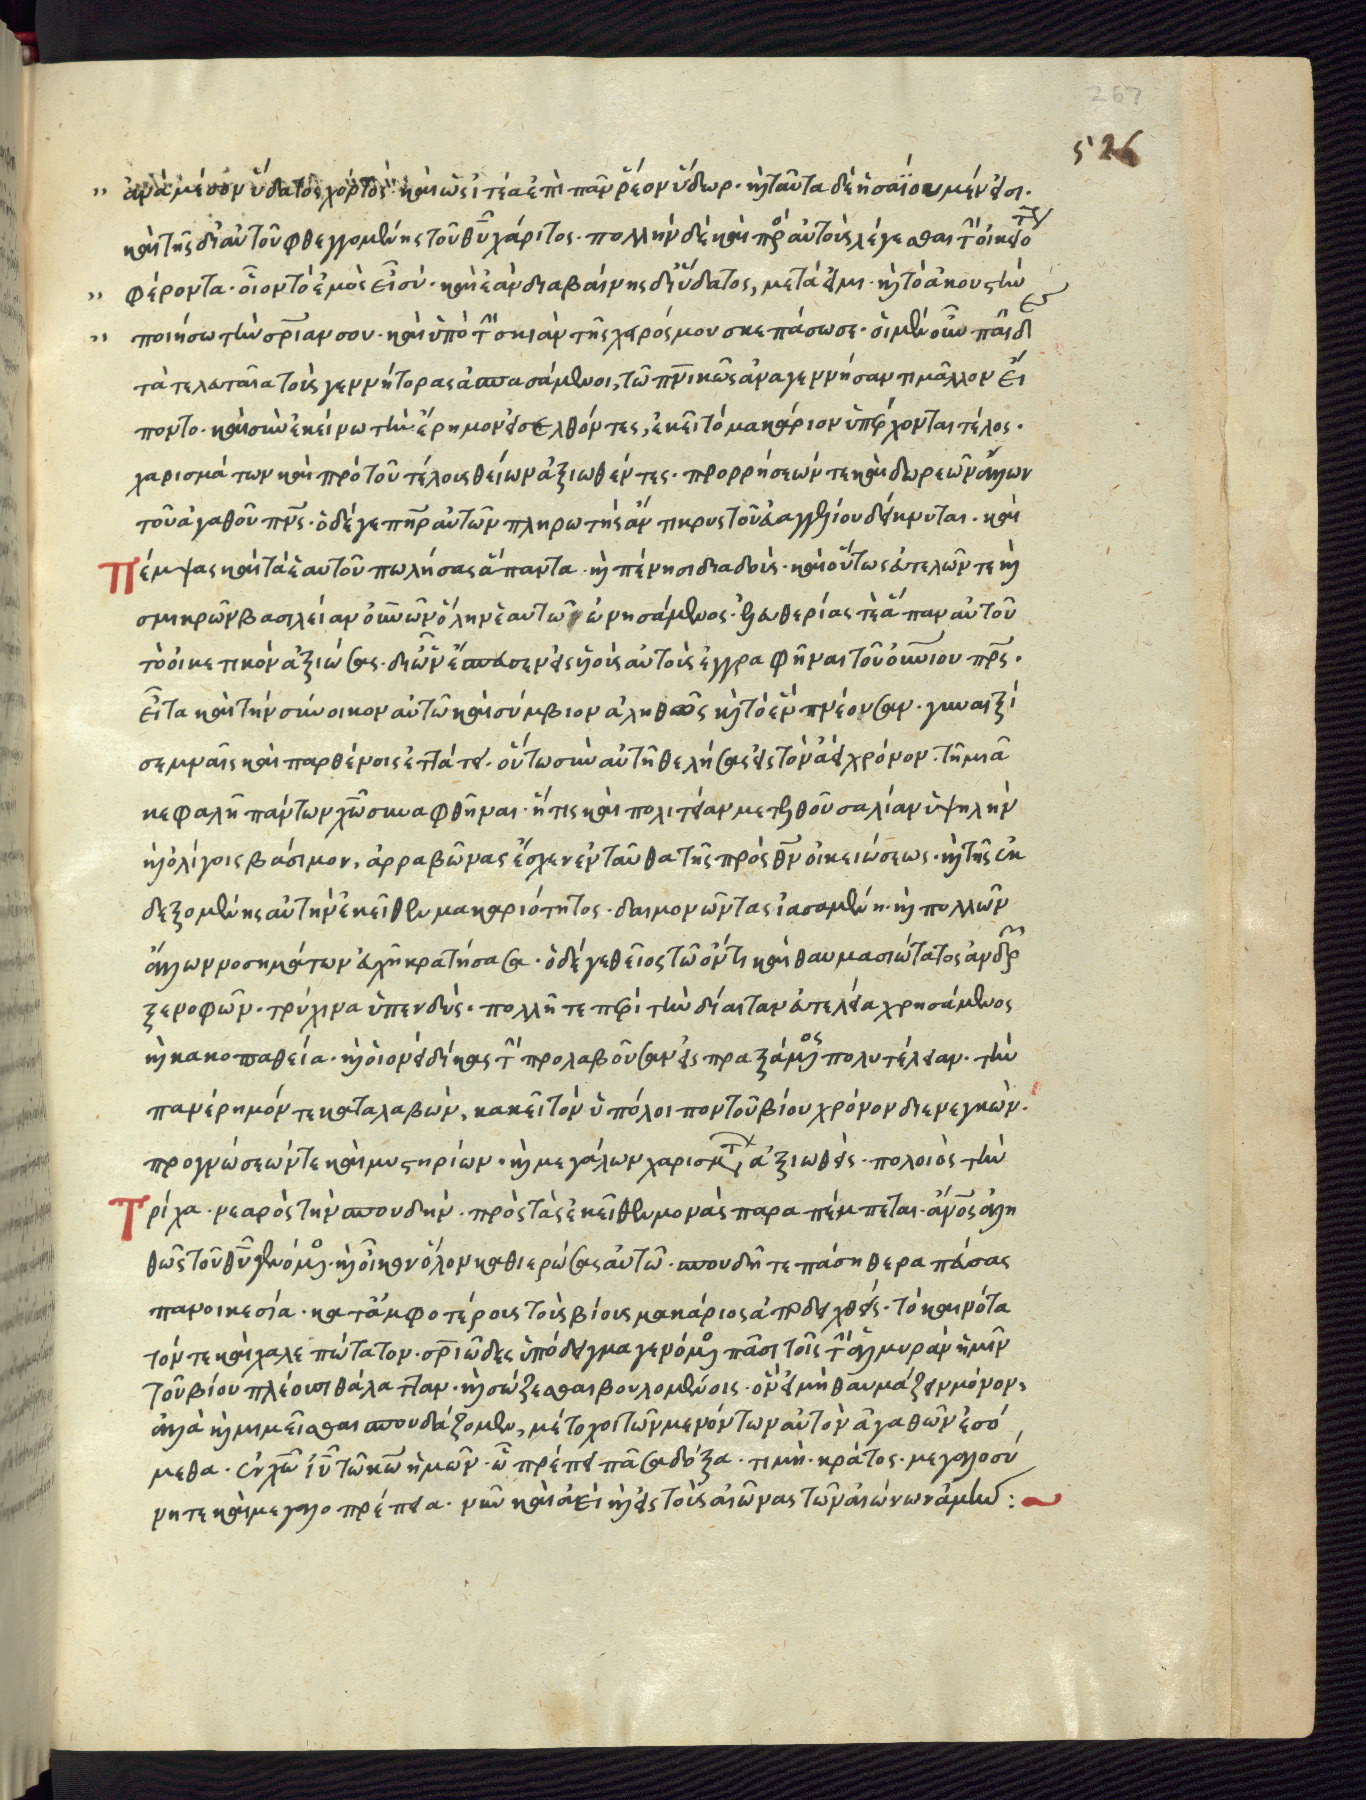 267
526
ἀνὰ μέσον ὕδατος χόρτος· καὶ ὡς ἰτέα ἐπὶ παραρρέον ὕδωρ· καὶ ταῦτα δὲ ἡσαΐου μέν εἰσι·
καὶ τῆς δι' αὐτοῦ φθεγγομένης τοῦ θυ χάριτος· πολλὴν δὲ καὶ πρὸς αὐτοὺς λέγεσθαι τὴν οἰκειότητα
φέροντα· οἷον τὸ ἐμὸς εἶ σύ· καὶ ἐὰν διαβαίνης δι' ὕδατος, μετὰ σοῦ εἰμι· καὶ τὸ ἀκουστὴν
ποιήσω τὴν σωτηρίαν σου· καὶ ὑπὸ τὴν σκιὰν τῆς χειρός μου σκεπάσω σε· οἱ μὲν οὖν παῖδες
τὰ τελευταῖα τοὺς γεννήτορας ἀσπασάμενοι, τῶ πνικῶς ἀναγεννήσαντι μᾶλλον εἵ
ποντο· καὶ σὺν ἐκείνω τὴν ἔρημον εἰσελθόντες, ἐκεῖ τὸ μακάριον ὑπέρχονται τέλος·
χαρισμάτων καὶ πρὸ τοῦ τέλους θείων ἀξιωθέντες· προρρήσεών τε καὶ δωρεῶν ἄλλων
τοῦ ἀγαθοῦ πνς· ὁ δέ γε πηρ αὐτῶν πληρωτὴς ἄντικρυς τοῦ εὐαγγελίου δείκνυται· καὶ
πέμψας καὶ τὰ ἑαυτοῦ πωλήσας ἅπαντα καὶ πένησι διαδούς· καὶ οὕτως εὐτελῶν τε καὶ
σμικρῶν βασιλείαν οὐνῶν ὅλην ἑαυτῶ ὠνησάμενος· ἐλευθερίας τε ἅπαν αὐτοῦ
τὸ οἰκετικὸν ἀξιώσας· δι' ὧν ἔσπευσεν εἰς υἱοὺς αὐτοὺς ἐγγραφῆναι τοῦ οὐνίου πρς·
εἶτα καὶ τὴν σύνοικον αὐτῶ καὶ σύμβιον ἀληθῶς καὶ τὸ ἓν πνέουσαν· γυναιξὶ
σεμναῖς καὶ παρθένοις ἐπιστατεῖ· οὕτω σὺν αὐτῆ θελήσας εἰς τὸν ἀεὶ χρόνον· τῆ μιᾶ
κεφαλῆ πάντων χῶ συναφθῆναι· ἥτις καὶ πολιτείαν μετελθοῦσα λίαν ὑψηλὴν
καὶ ὀλίγοις βάσιμον, ἀρραβῶνας ἔσχεν ἐνταῦθα τῆς πρὸς θν οἰκειώσεως· καὶ τῆς ἐκ
δεξομένης αὐτὴν ἐκεῖθεν μακαριότητος· δαιμονῶντας ἰασαμένη· καὶ πολλῶν
ἄλλων νοσημάτων εὐχῆ κρατήσασα· ὁ δέ γε θεῖος τῶ ὄντι καὶ θαυμασιώτατος ἀνδρῶν
ξενοφῶν· τρύχινα ὑπενδύς· πολλῆ τε περὶ τὴν δίαιταν εὐτελεία χρησάμενος
καὶ κακοπαθεία· καὶ οἱονεὶ δίκας τὴν προλαβοῦσαν εἰσπραξάμενος πολυτέλειαν· τὴν
πανέρημόν τε καταλαβών, κακεῖ τὸν ὑπόλοιπον τοῦ βίου χρόνον διενεγκών·
προγνώσεών τε καὶ μυστηρίων· καὶ μεγάλων χαρισμάτων ἀξιωθείς· πολοιὸς τὴν
τρίχα· νεαρὸς τὴν σπουδήν· πρὸς τὰς ἐκεῖθεν μονὰς παραπέμπεται· ἄνος ἀλη
θῶς τοῦ θυ γενόμενος· καὶ οἶκον ὅλον καθιερώσας αὐτῶ· σπουδῆ τε πάση θεραπεύσας
πανοικεσία· κατ' ἀμφοτέρους τοὺς βίους μακάριος ἀποδειχθείς· τὸ καινότα
τόν τε καὶ χαλεπώτατον· σωτηριῶδες ὑπόδειγμα γενόμενος πᾶσι τοῖς τὴν ἁλμυρὰν ἡμῖν
τοῦ βίου πλέουσι θάλατταν· καὶ σώζεσθαι βουλομένοις· ὃν εἰ μὴ θαυμάζειν μόνον,
ἀλλὰ καὶ μιμεῖσθαι σπουδάζομεν, μέτοχοι τῶν μενόντων αὐτὸν ἀγαθῶν ἐσό
μεθα· ἐν χῶ ἰυ τῶ κω ἡμῶν· ὧ πρέπει πᾶσα δόξα· τιμή· κράτος· μεγαλοσύ
νη τε καὶ μεγαλοπρέπεια· νῦν καὶ ἀεὶ καὶ εἰς τοὺς αἰῶνας τῶν αἰώνων ἀμήν: